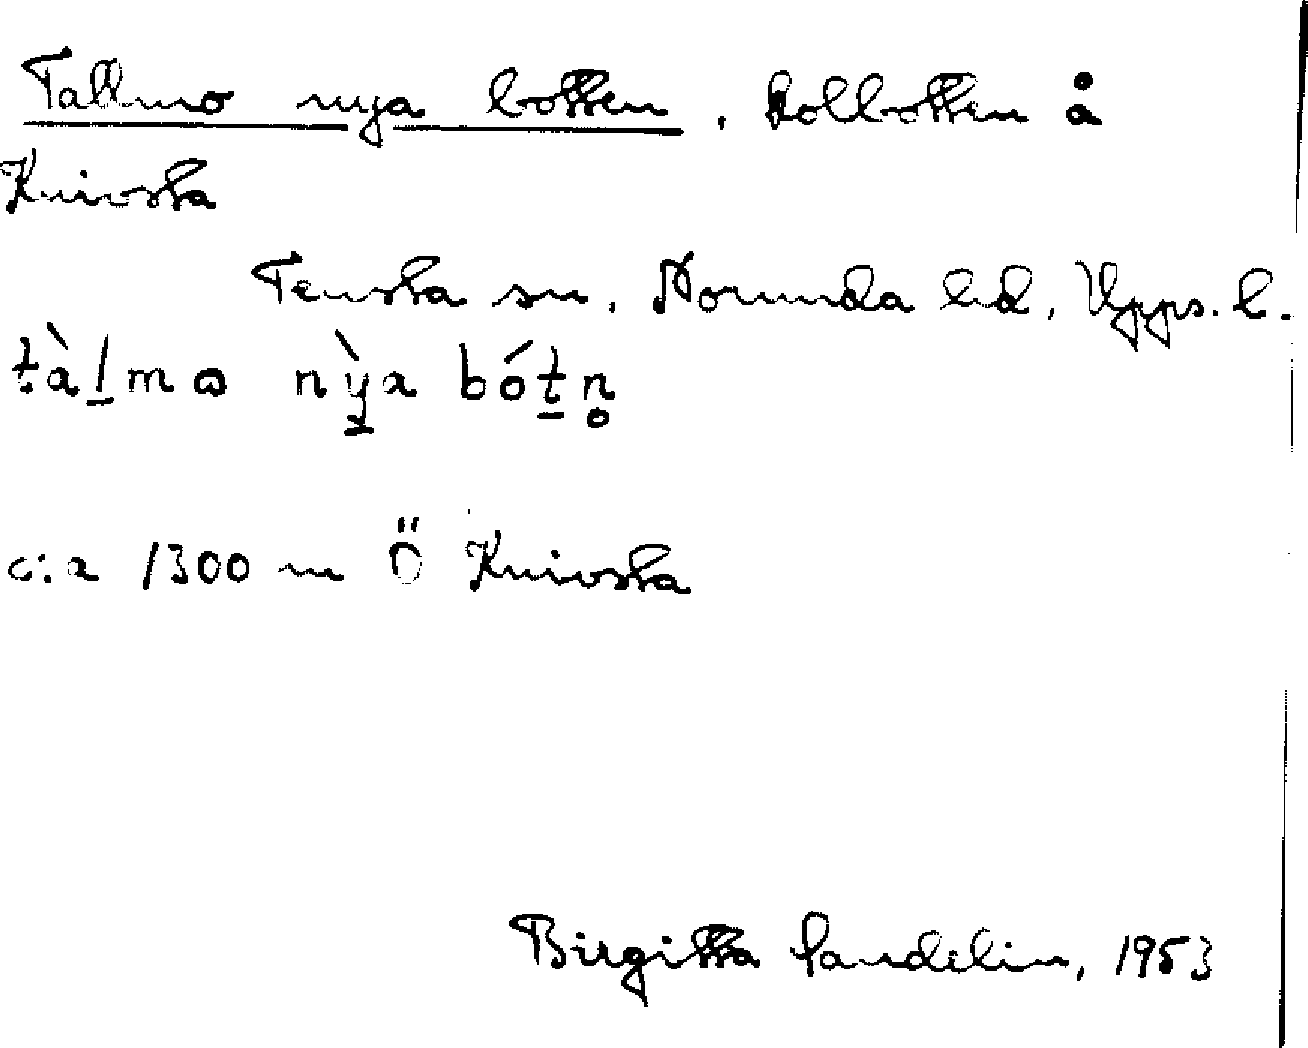 Tallmo nya botten, kolbotten å
Knivsta
Tensta sn, Norunda hd, Upps. l.
tàl̠mo nỳ̠a bót̠n̥
c:a 1300 m Ö Knivsta
Birgitta Sandelin, 1953